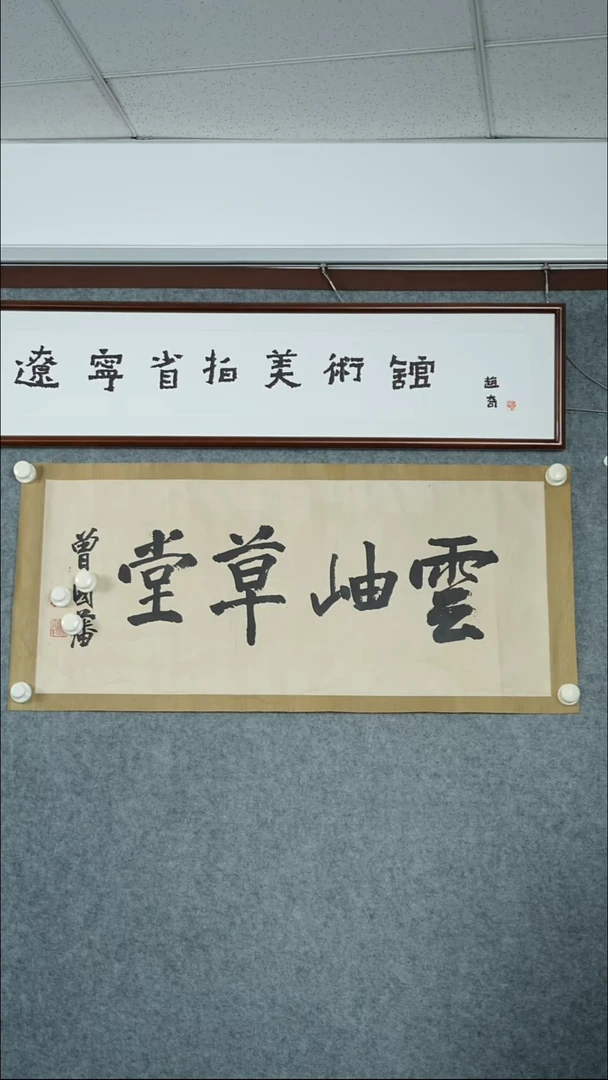 遼寧省拍美術舘
趙奇
雲岫草堂
曾國藩